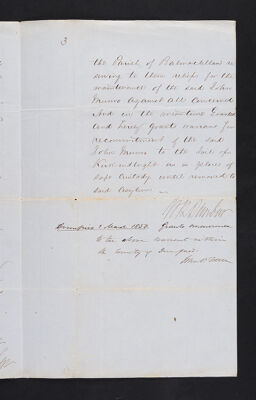 3
the Parish of Balmaclellan re
serving to them relief for the
maintenance of the said John
Munro against all concerned
And in the meantime Grants
and hereby Grants warrant for
recommitment of the said
John Munro to the Jail of
Kirkcudbright as a place of
safe custody until removed to
said Asylum
W. H. Dunbar
Dumfries 2 March 1850. Grants concurrence
to the above warrant within
the County of Dumfries